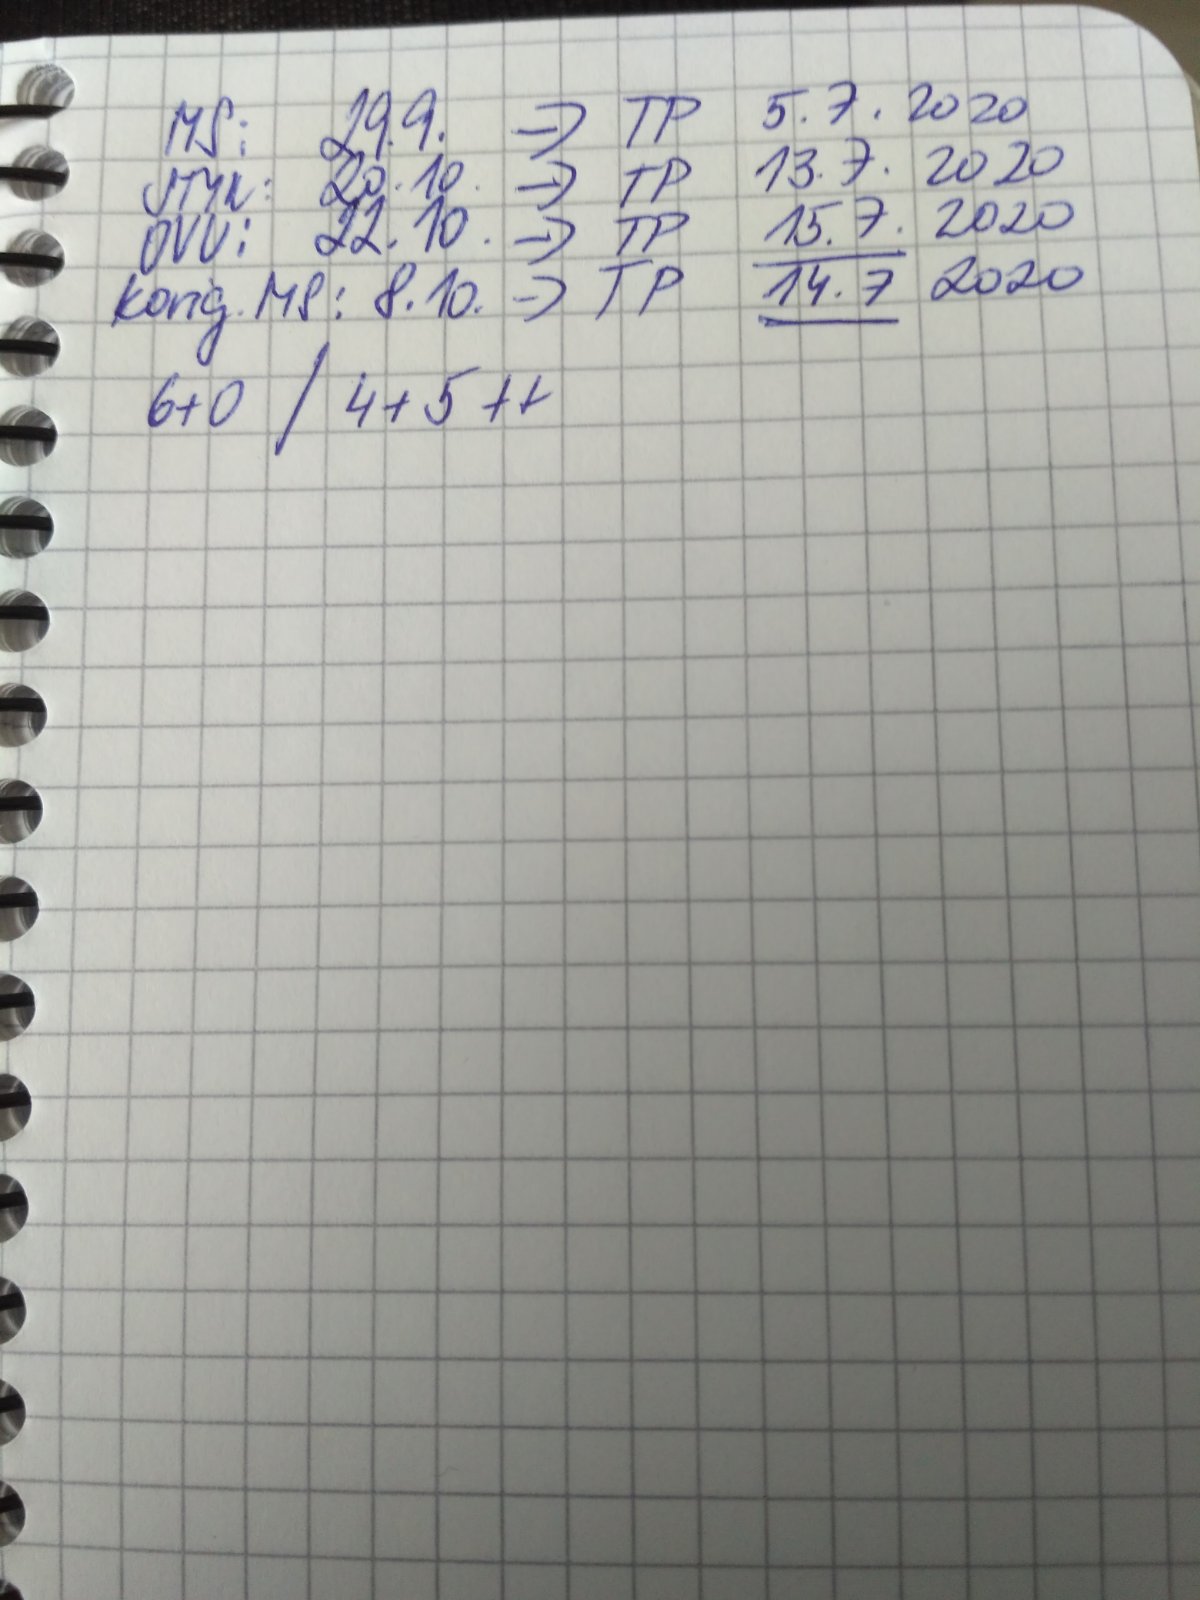 MS: 29.9. -> TP 5.7.2020
STYK: 20.10. -> TP 13.7.2020
OVU: 22.10. -> TP 15.7.2020
Korig. MS: 8.10. -> TP 14.7 2020
6+0 / 4+5 ++